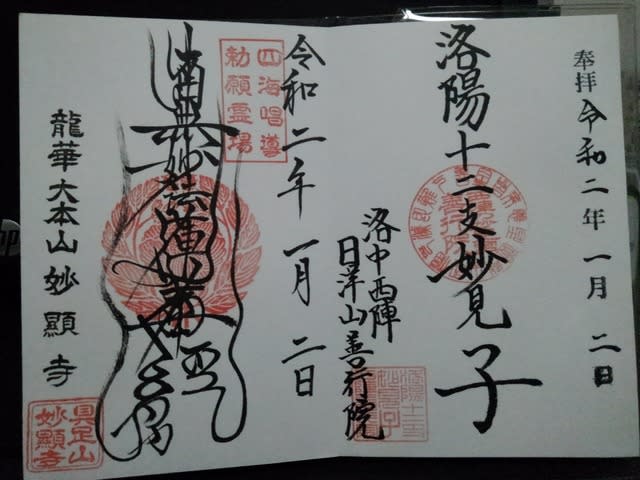 奉拝 令和二年一月二日
洛陽十二支妙見子
洛中西陣
日洋山善行院
令和二年一月二日
四海唱導
勅願霊場
南無妙法蓮華経
龍華大本山妙顯寺
具足山
妙顯寺